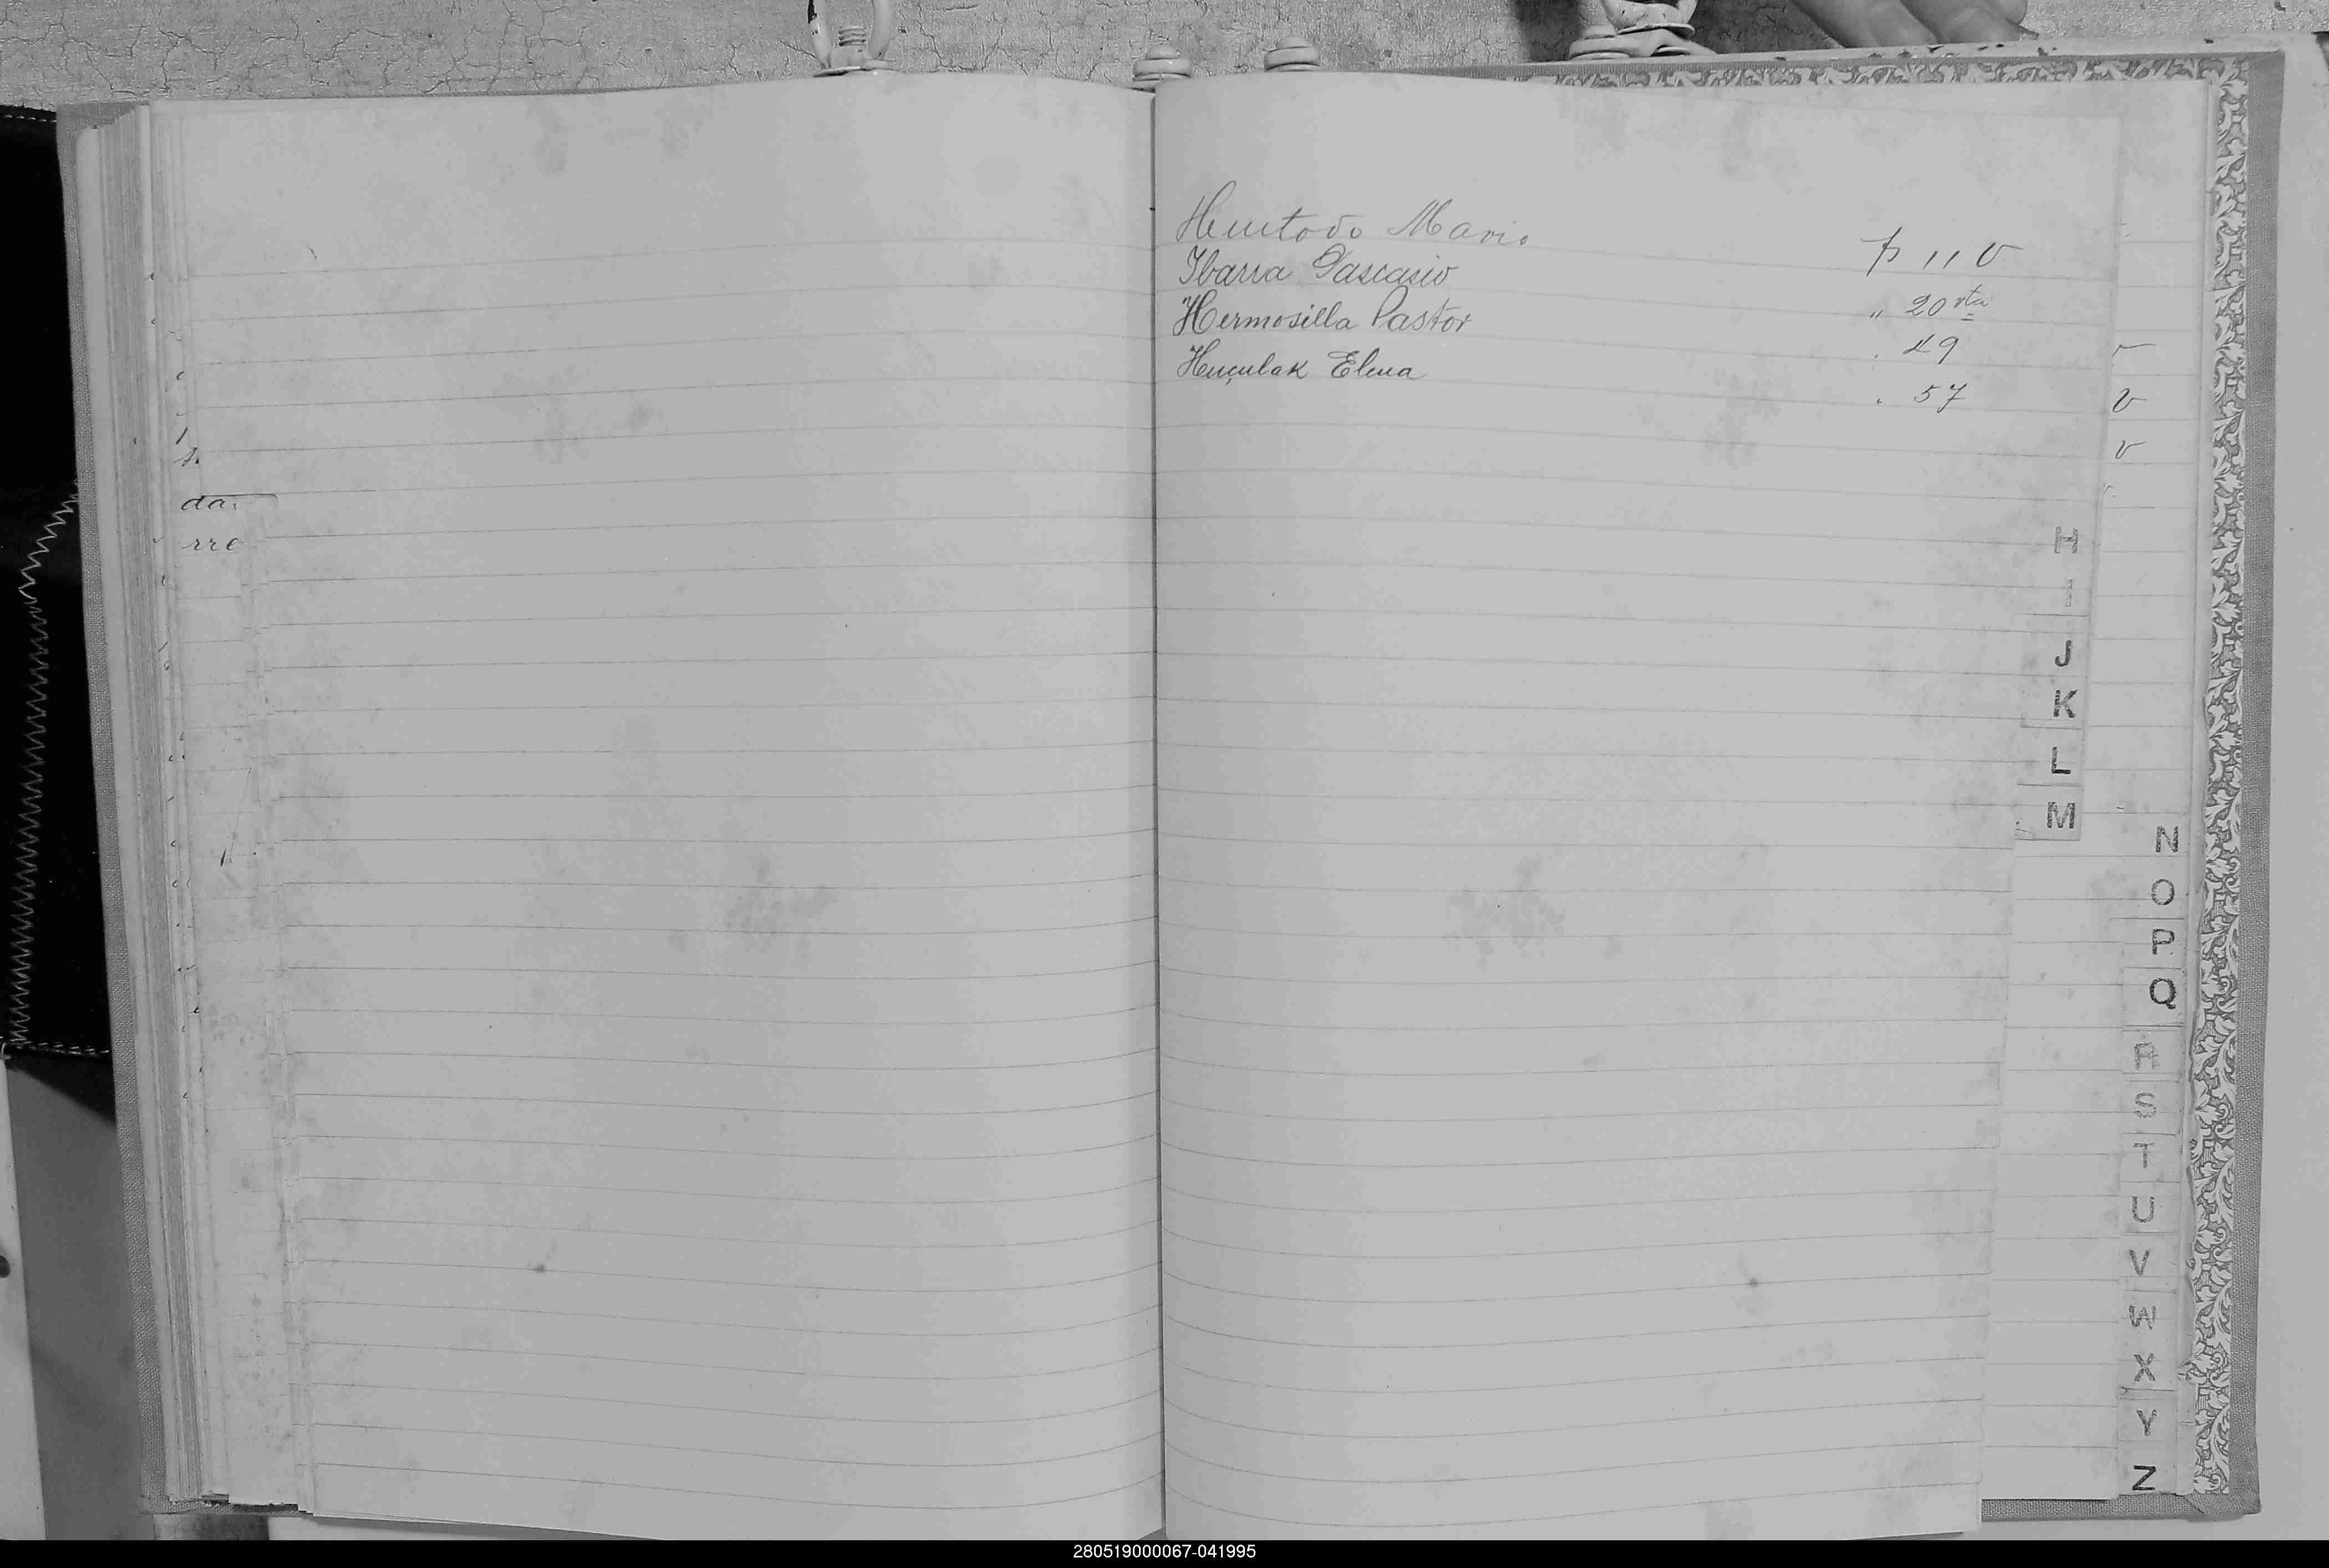 da.
rre
Mario p 11 v
Ibarra Pascasio " 20 vta
Hermosilla Pastor . 49
Huçulak Elena . 57
v
v
H
I
J
K
L
M
N
O
P
Q
R
S
T
U
V
W
X
Y
Z
280519000067-041995